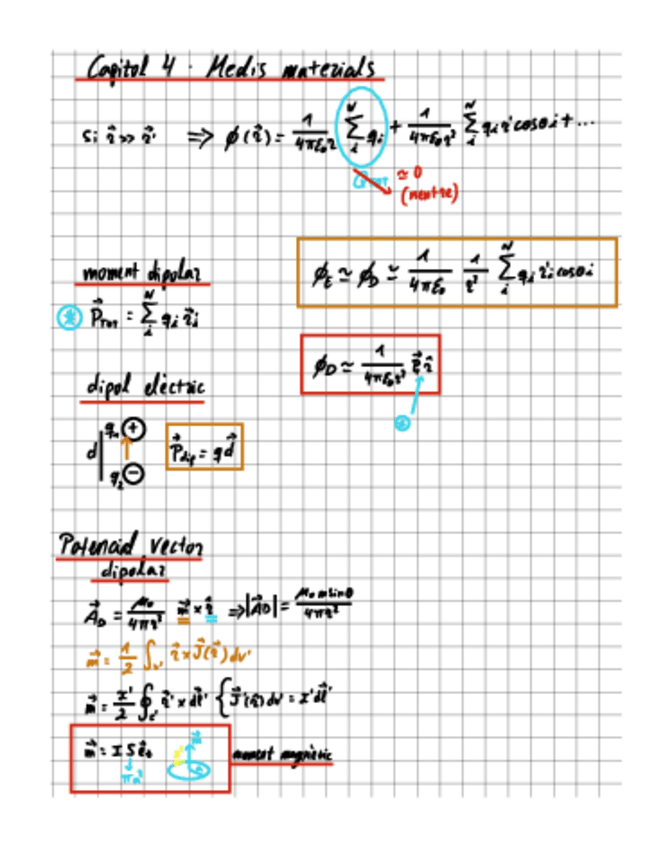 Capitol 4 · Medis materials
Si r⃗ >> r⃗' ⇒ ϕ(r⃗) = 1/4πε₀r ∑ᵢᴺ qᵢ + 1/4πε₀r² ∑ᵢᴺ qᵢ r' cosθᵢ + ...
≃ 0
(neutre)
moment dipolar
P⃗_TOT = ∑ᵢᴺ qᵢ r⃗ᵢ
ϕ_E ≃ ϕ_D ≃ 1/4πε₀ 1/r² ∑ᵢᴺ qᵢ r'ᵢ cosθᵢ
ϕ_D ≃ 1/4πε₀r² P⃗ r̂
dipol elèctric
d q₁ + q₂ −
P⃗_dip = q d⃗
Potencial vector
dipolar
A⃗_D = μ₀/4πr² m⃗ × r̂ ⇒ |A⃗D| = μ₀ m sinθ/4πr²
m⃗ = 1/2 ∫ᵥ' r⃗ × J⃗(r⃗) dv'
m⃗ = I'/2 ∮_c' r⃗' × dl⃗' { J⃗'(r⃗) dv' = I' dl⃗'
m⃗ = I S
moment magnètic